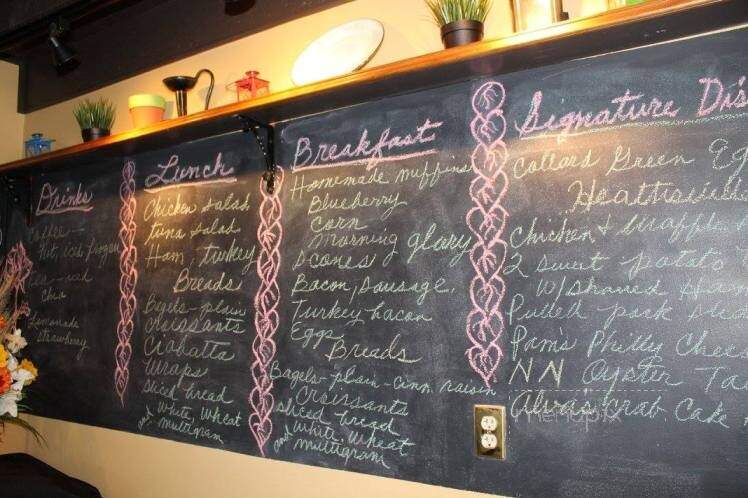 Drinks
Coffee--
Hot, iced, frozen
Tea -- iced
Chia
Lemonade
strawberry
Lunch
Chicken salad
tuna salad
Ham, turkey
Breads
Bagels-plain
croissants
Ciabatta
Wraps
sliced bread
White, wheat
and multigram
Breakfast
Homemade muffins
Blueberry
Corn
morning glory
scones
Bacon, sausage,
Turkey bacon
Eggs
Breads
Bagels-plain-cinn raisin
Croissants
sliced bread
White, Wheat
and multigram
Signature Dis
Collard Green Eg
Heathsvid
Chicken & Waffle
2 sweet potato
w/shaved Ham
Pulled pork
Pam's Philly Chee
NN Oyster Ta
Alvas Crab Cake
menupix